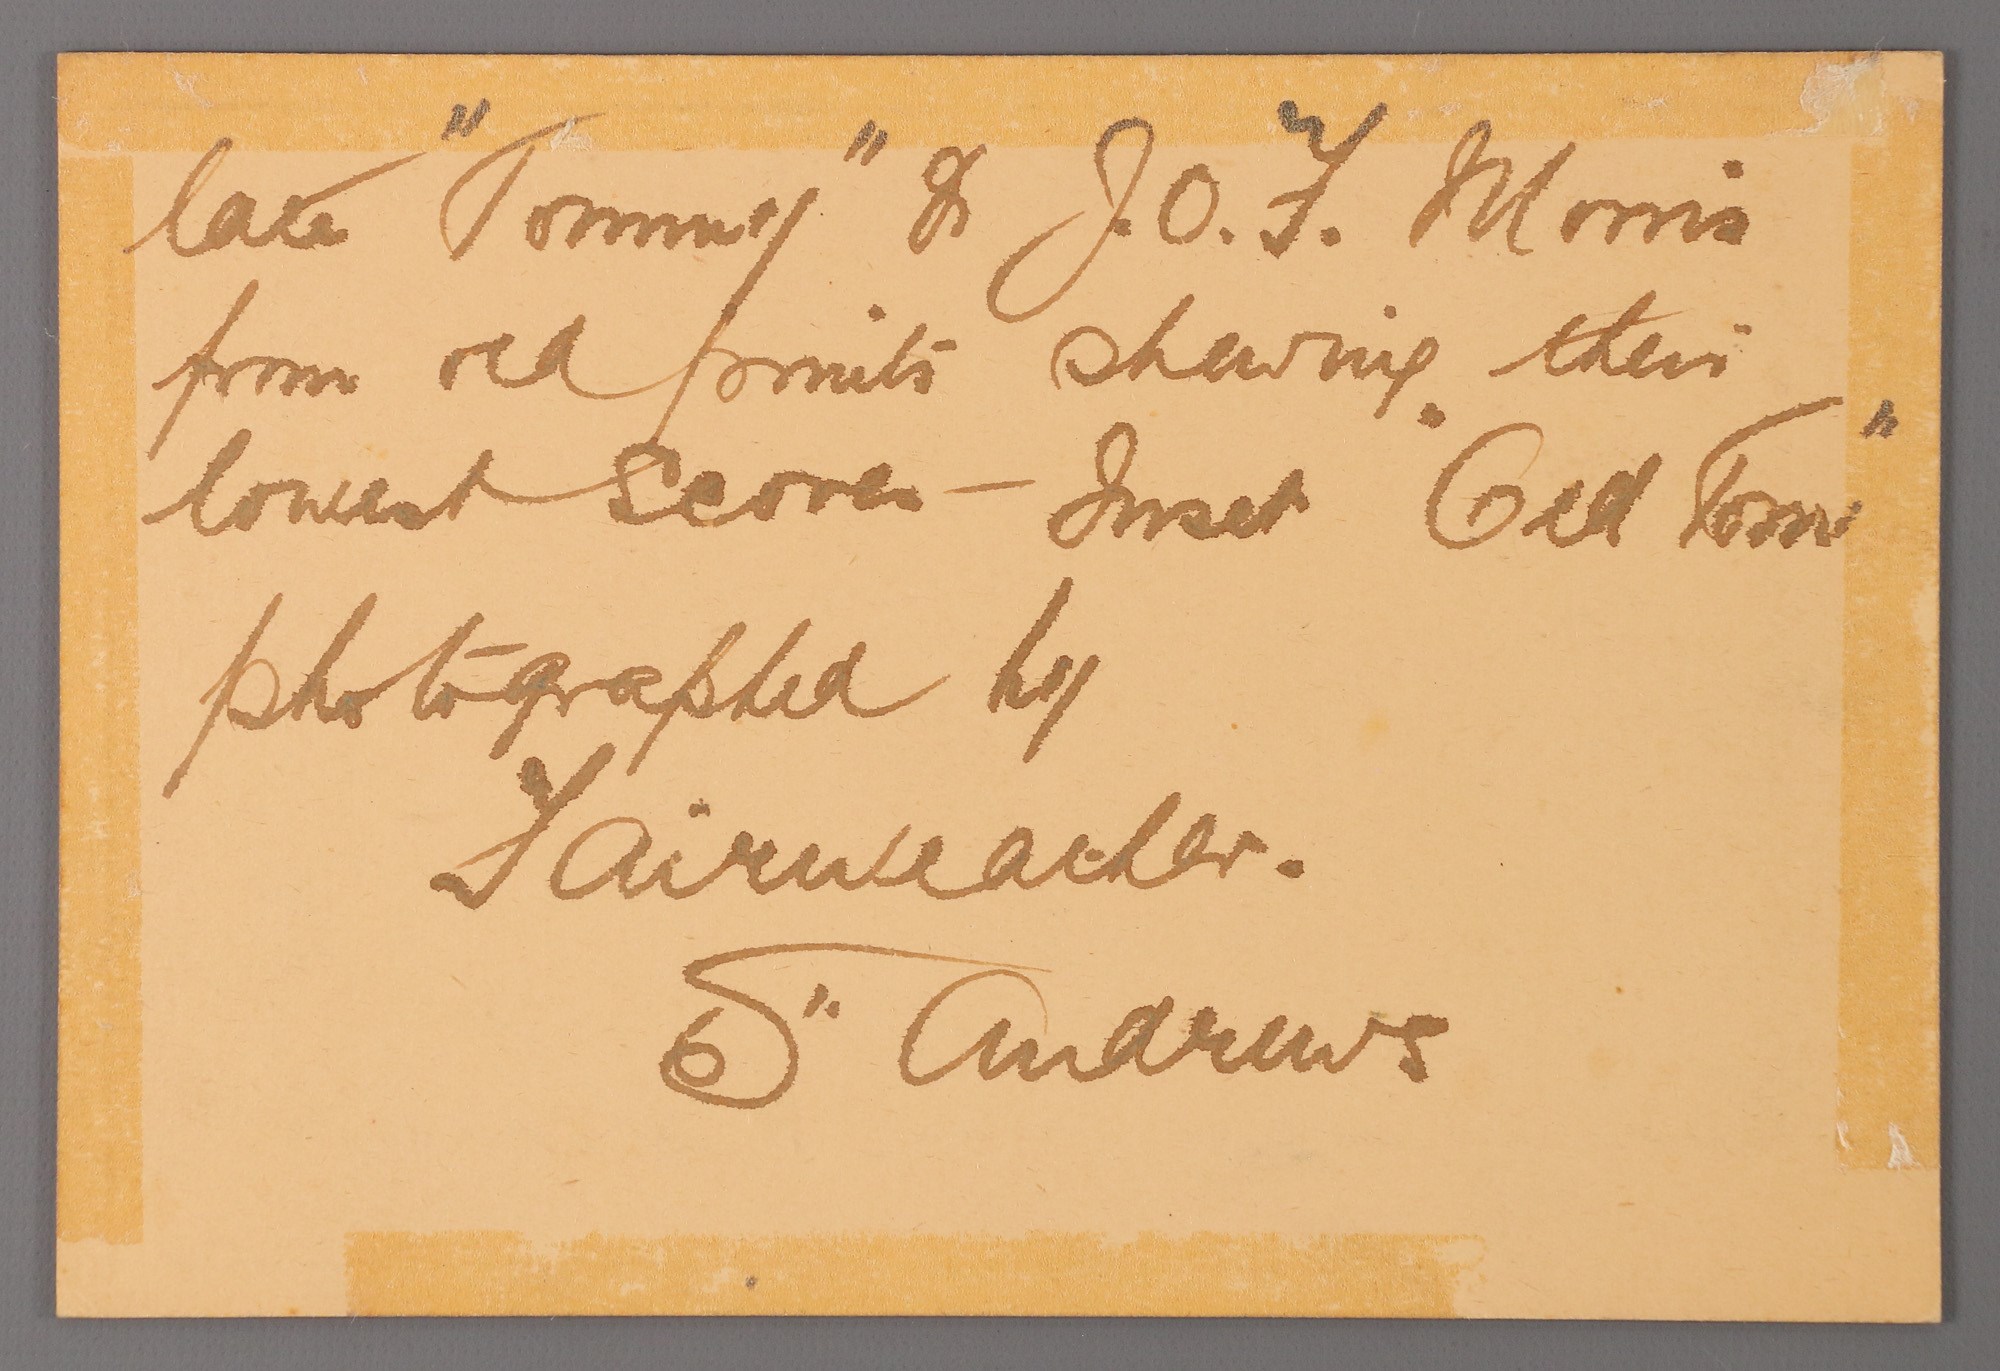 late "Tommy" & J.O.F. Morris
from old prints shewing their
lowest scores — Inset "Old Tom"
photographed by
Fairweather.
St Andrews